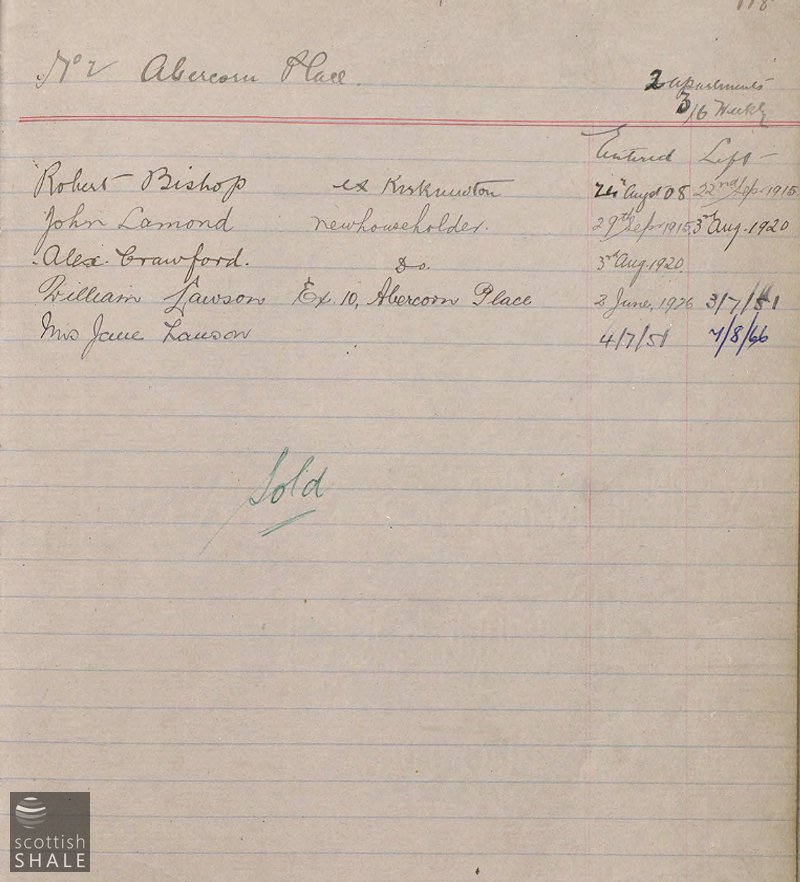 118
No 2 Abercorn Place.
2 apartments
3/6 Weekly
Entered Left
Robert Bishop ex Kirknewton Augst 08 22nd Sep. 1915
John Lamond newhouseholder. 29th Sep. 1915 3rd Aug. 1920
Alex. Crawford. Do. 3rd Aug. 1920
William Lawson Ex. 10, Abercorn Place 2 June, 1926 3/7/51
Mrs Jane Lawson 4/7/51 7/8/66
Sold
scottish
SHALE